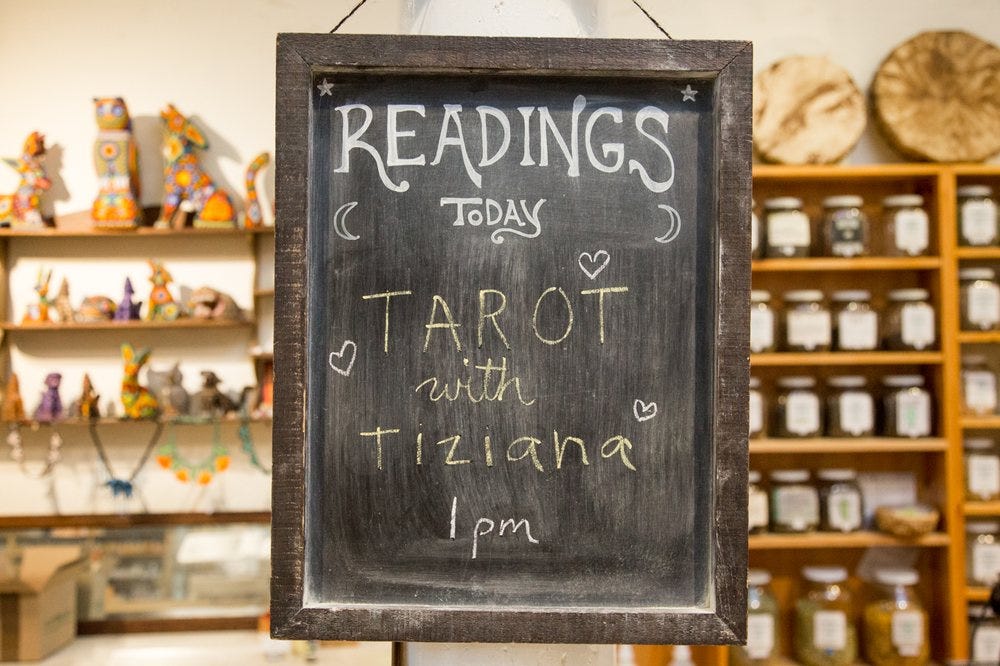 READINGS
TODAY
TAROT
with
Tiziana
1pm